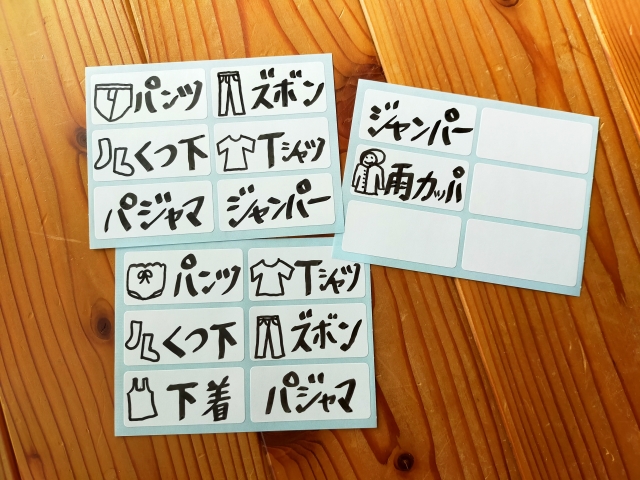 パンツ
ズボン
くつ下
Tシャツ
パジャマ
ジャンパー
ジャンパー
雨カッパ
パンツ
Tシャツ
くつ下
ズボン
下着
パジャマ